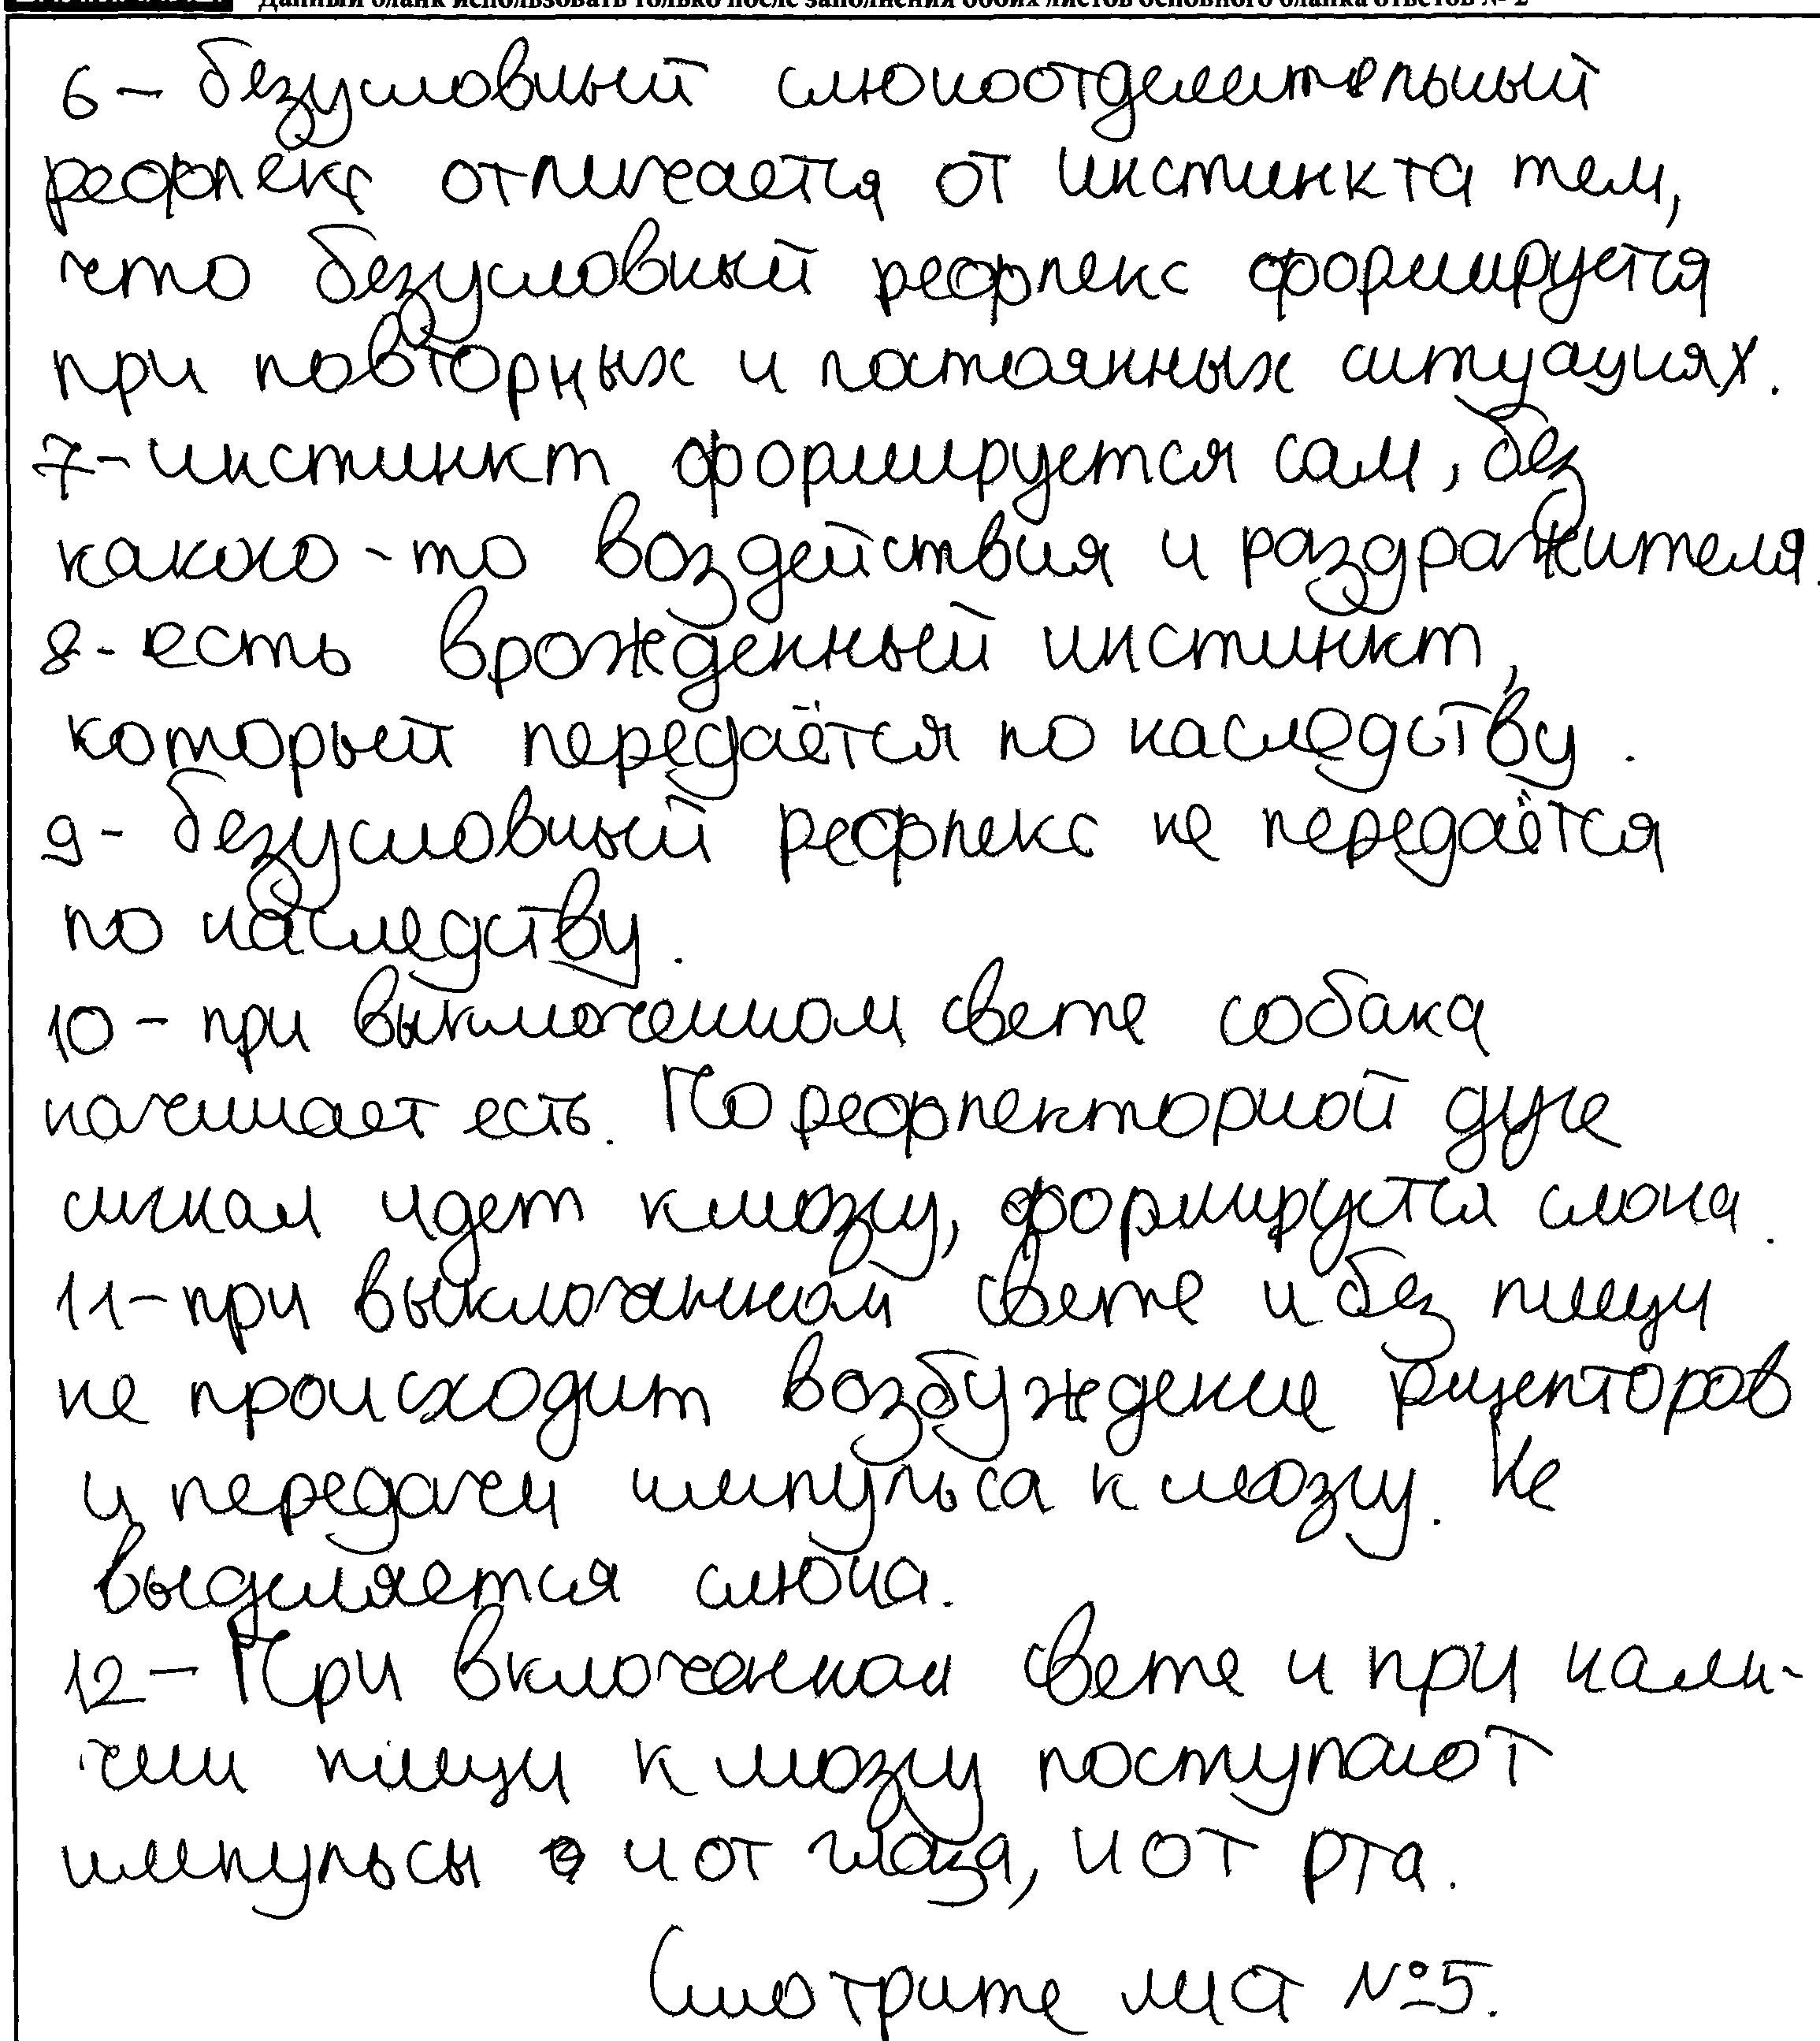 Данный бланк использовать только после заполнения обоих листов основного бланка ответов № 2
6 – безусловный слюноотделительный
рефлекс отличается от инстинкта тем,
что безусловный рефлекс формируется
при повторных и постоянных ситуациях.
7 – инстинкт формируется сам, без
какого-то воздействия и раздражителя.
8 - есть врожденный инстинкт,
который передаётся по наследству.
9 - безусловный рефлекс не передаётся
по наследству.
10 – при выключенном свете собака
начинает есть. По рефлекторной дуге
сигнал идет к мозгу, формируется слюна.
11 – при выключанном свете и без пищи
не происходит возбуждение рецепторов
и передачи импульса к мозгу. Не
выделяется слюна.
12 – При включенном свете и при нали-
чии пищи к мозгу поступают
импульсы и от глаза, и от рта.
Смотрите лист №5.